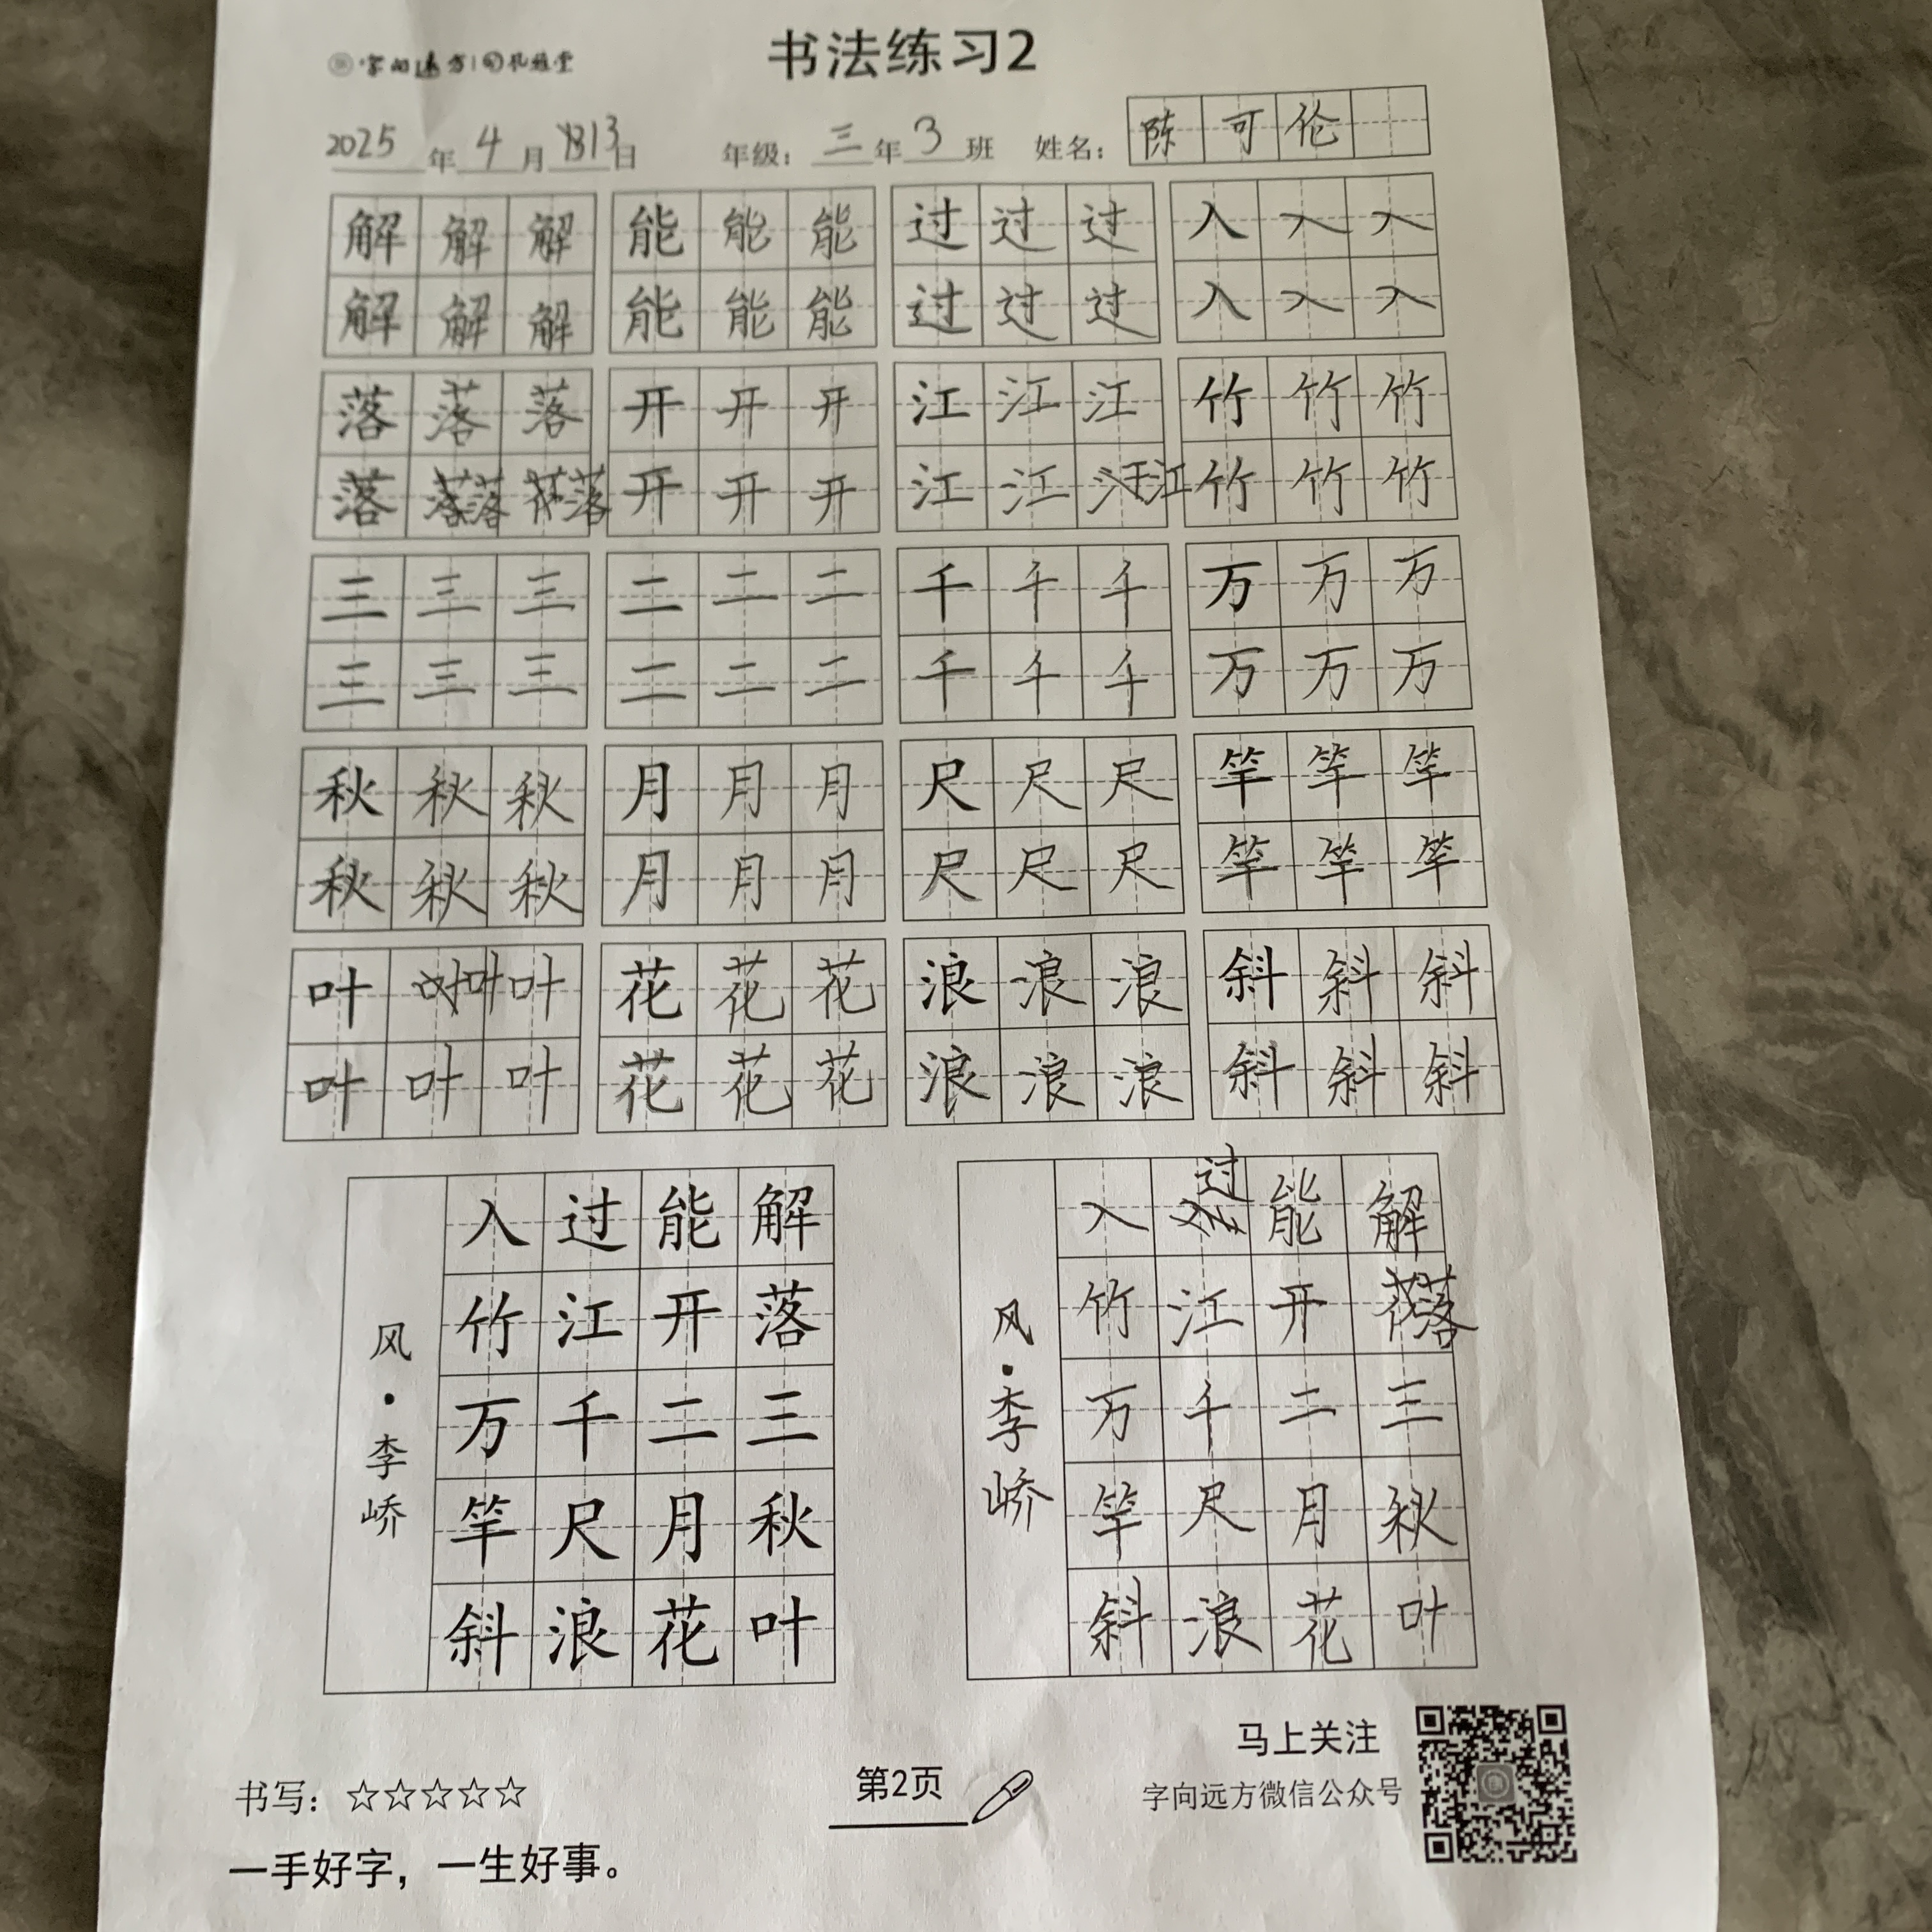 字向远方
书法练习2
2025年4月13日 年级：三年3班 姓名：陈可伦
解解解 能能能 过过过 入入入
解解解 能能能 过过过 入入入
落落落 开开开 江江江 竹竹竹
落落落 开开开 江江江 竹竹竹
三三三 二二二 千千千 万万万
三三三 二二二 千千千 万万万
秋秋秋 月月月 尺尺尺 竿竿竿
秋秋秋 月月月 尺尺尺 竿竿竿
叶叶叶 花花花 浪浪浪 斜斜斜
叶叶叶 花花花 浪浪浪 斜斜斜
解落三秋叶
能开二月花
过江千尺浪
入竹万竿斜
风·李峤
解落三秋叶
能开二月花
过江千尺浪
入竹万竿斜
风·李峤
书写：☆☆☆☆☆
一手好字，一生好事。
第2页
马上关注
字向远方微信公众号